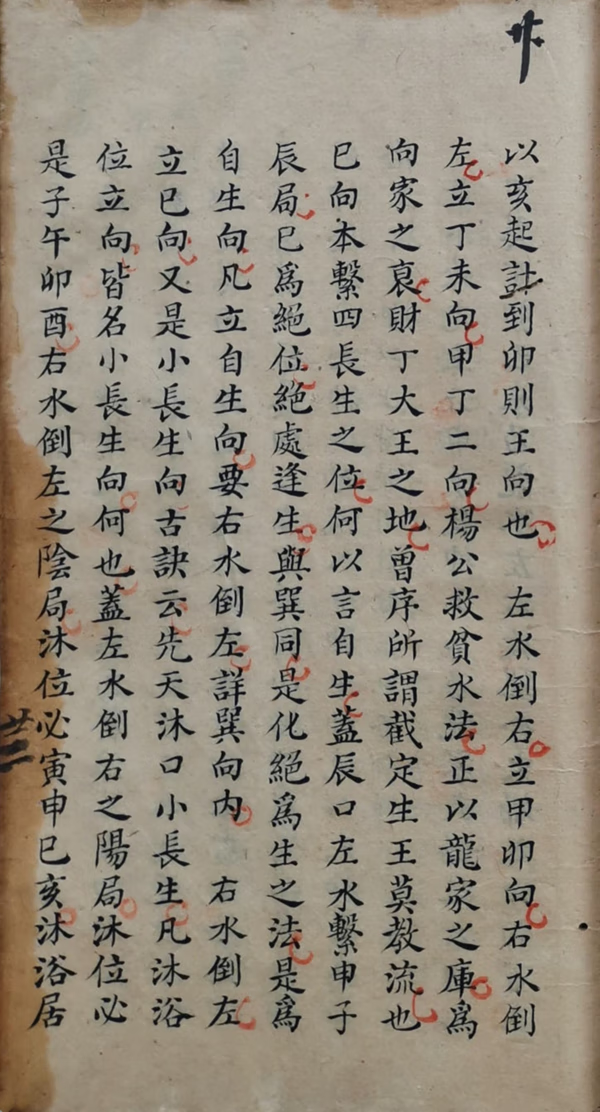 廿
以亥起計到卯則王向也　左水倒右立甲卯向右水倒
左立丁未向甲丁二向楊公救貧水法正以龍家之庫爲
向家之裒財丁大王之地曾序所謂截定生王莫教流也
巳向本繫四長生之位何以言自生蓋辰口左水繫申子
辰局巳爲絕位絕處逢生與巽同是化絕爲生之法是爲
自生向凡立自生向要右水倒左詳巽向內　右水倒左
立巳向又是小長生向古訣云先天沐口小長生凡沐浴
位立向皆名小長生向何也蓋左水倒右之陽局沐位必
是子午卯酉右水倒左之陰局沐位必寅申巳亥沐浴居
廿二